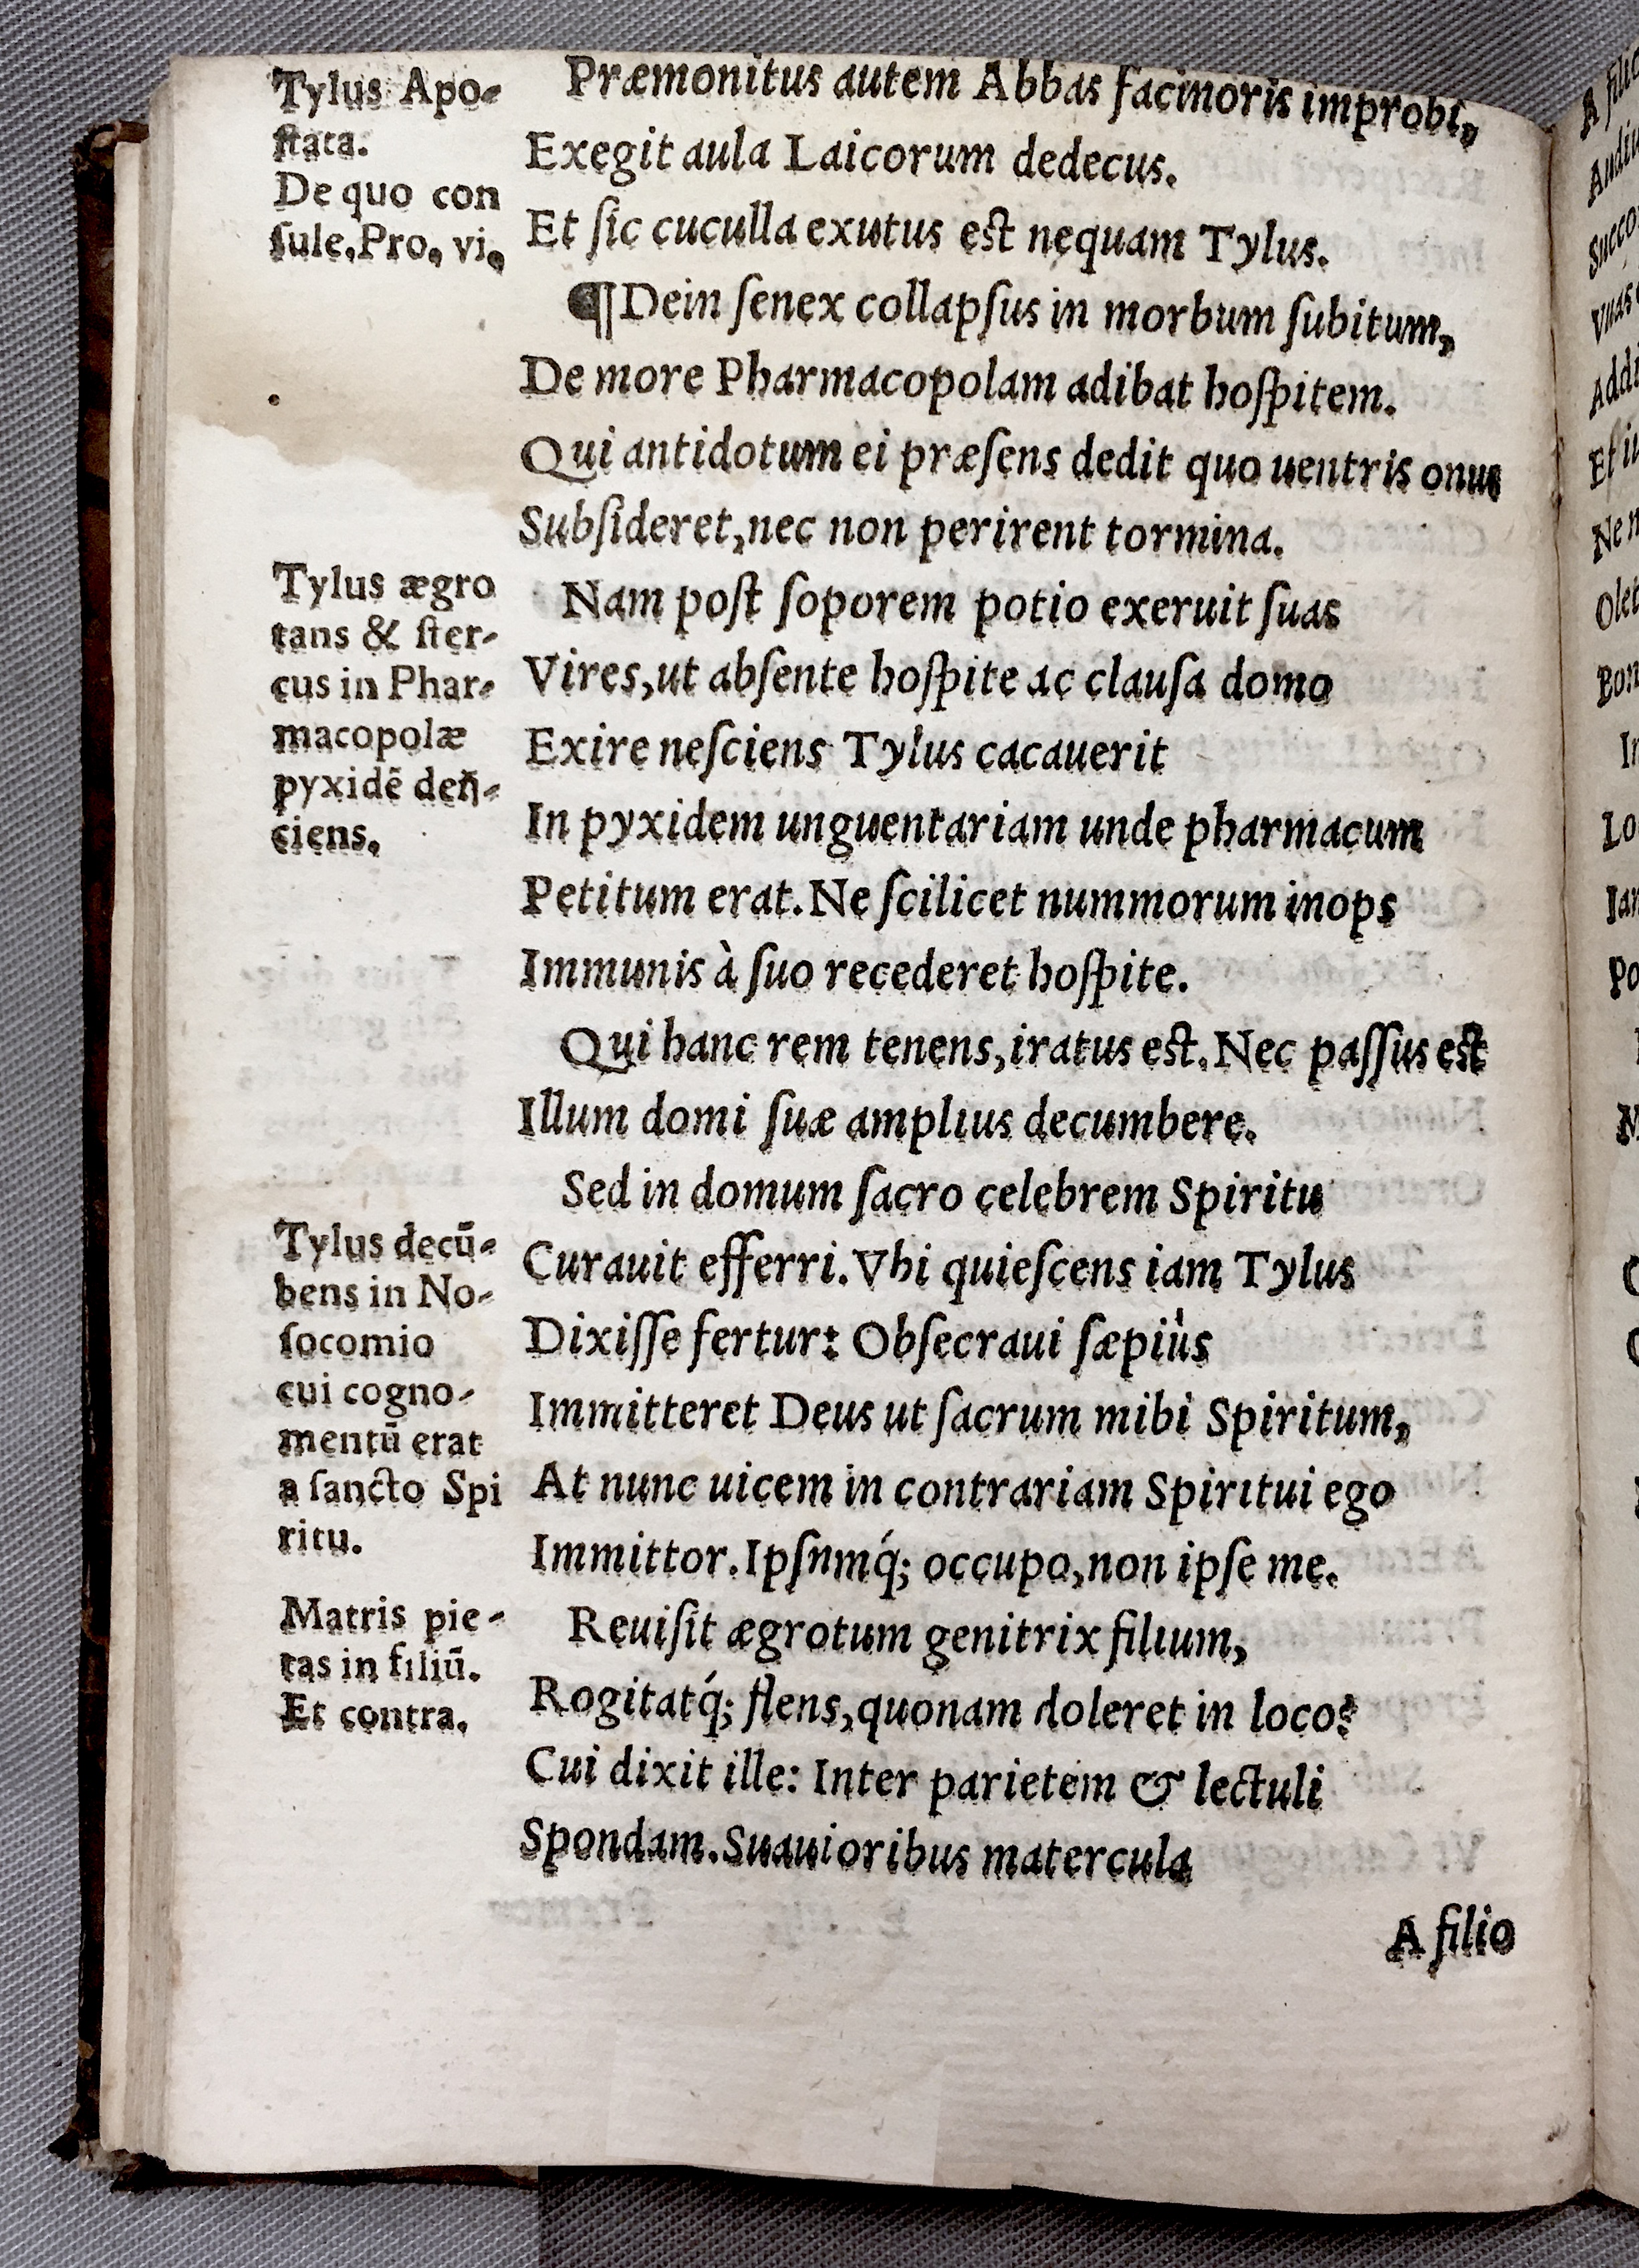 Tylus Apo-
ſtata.
De quo con
ſule, Pro. vi.
Præmonitus autem Abbas facinoris improbi,
Exegit aula Laicorum dedecus.
Et ſic cuculla exutus est nequam Tylus.
¶ Dein ſenex collapſus in morbum ſubitum,
De more Pharmacopolam adibat hoſpitem.
Qui antidotum ei præſens dedit quo uentris onus
Subſideret, nec non perirent tormina.
Tylus ægro
tans & ſter-
cus in Phar-
macopolæ
pyxidē deñ-
ciens.
Nam poſt ſoporem potio exeruit ſuas
Vires, ut abſente hoſpite ac clauſa domo
Exire neſciens Tylus cacauerit
In pyxidem unguentariam unde pharmacum
Petitum erat. Ne ſcilicet nummorum inops
Immunis à ſuo recederet hoſpite.
Qui hanc rem tenens, iratus est. Nec paſſus est
Illum domi ſuæ amplius decumbere.
Sed in domum ſacro celebrem Spiritu
Tylus decū-
bens in No-
ſocomio
cui cogno-
mentū erat
a ſancto Spi
ritu.
Curauit efferri. Vbi quieſcens iam Tylus
Dixiſſe fertur: Obſecraui ſæpiùs
Immitteret Deus ut ſacrum mihi Spiritum,
At nunc uicem in contrariam Spiritui ego
Immittor. Ipſnmq́; occupo, non ipſe me.
Matris pie-
tas in filiū.
Et contra.
Reuiſit ægrotum genitrix filium,
Rogitatq́; flens, quonam doleret in loco?
Cui dixit ille: Inter parietem & lectuli
Spondam. Suauioribus matercula
A filio
A filio
Succo
Addi
Olet